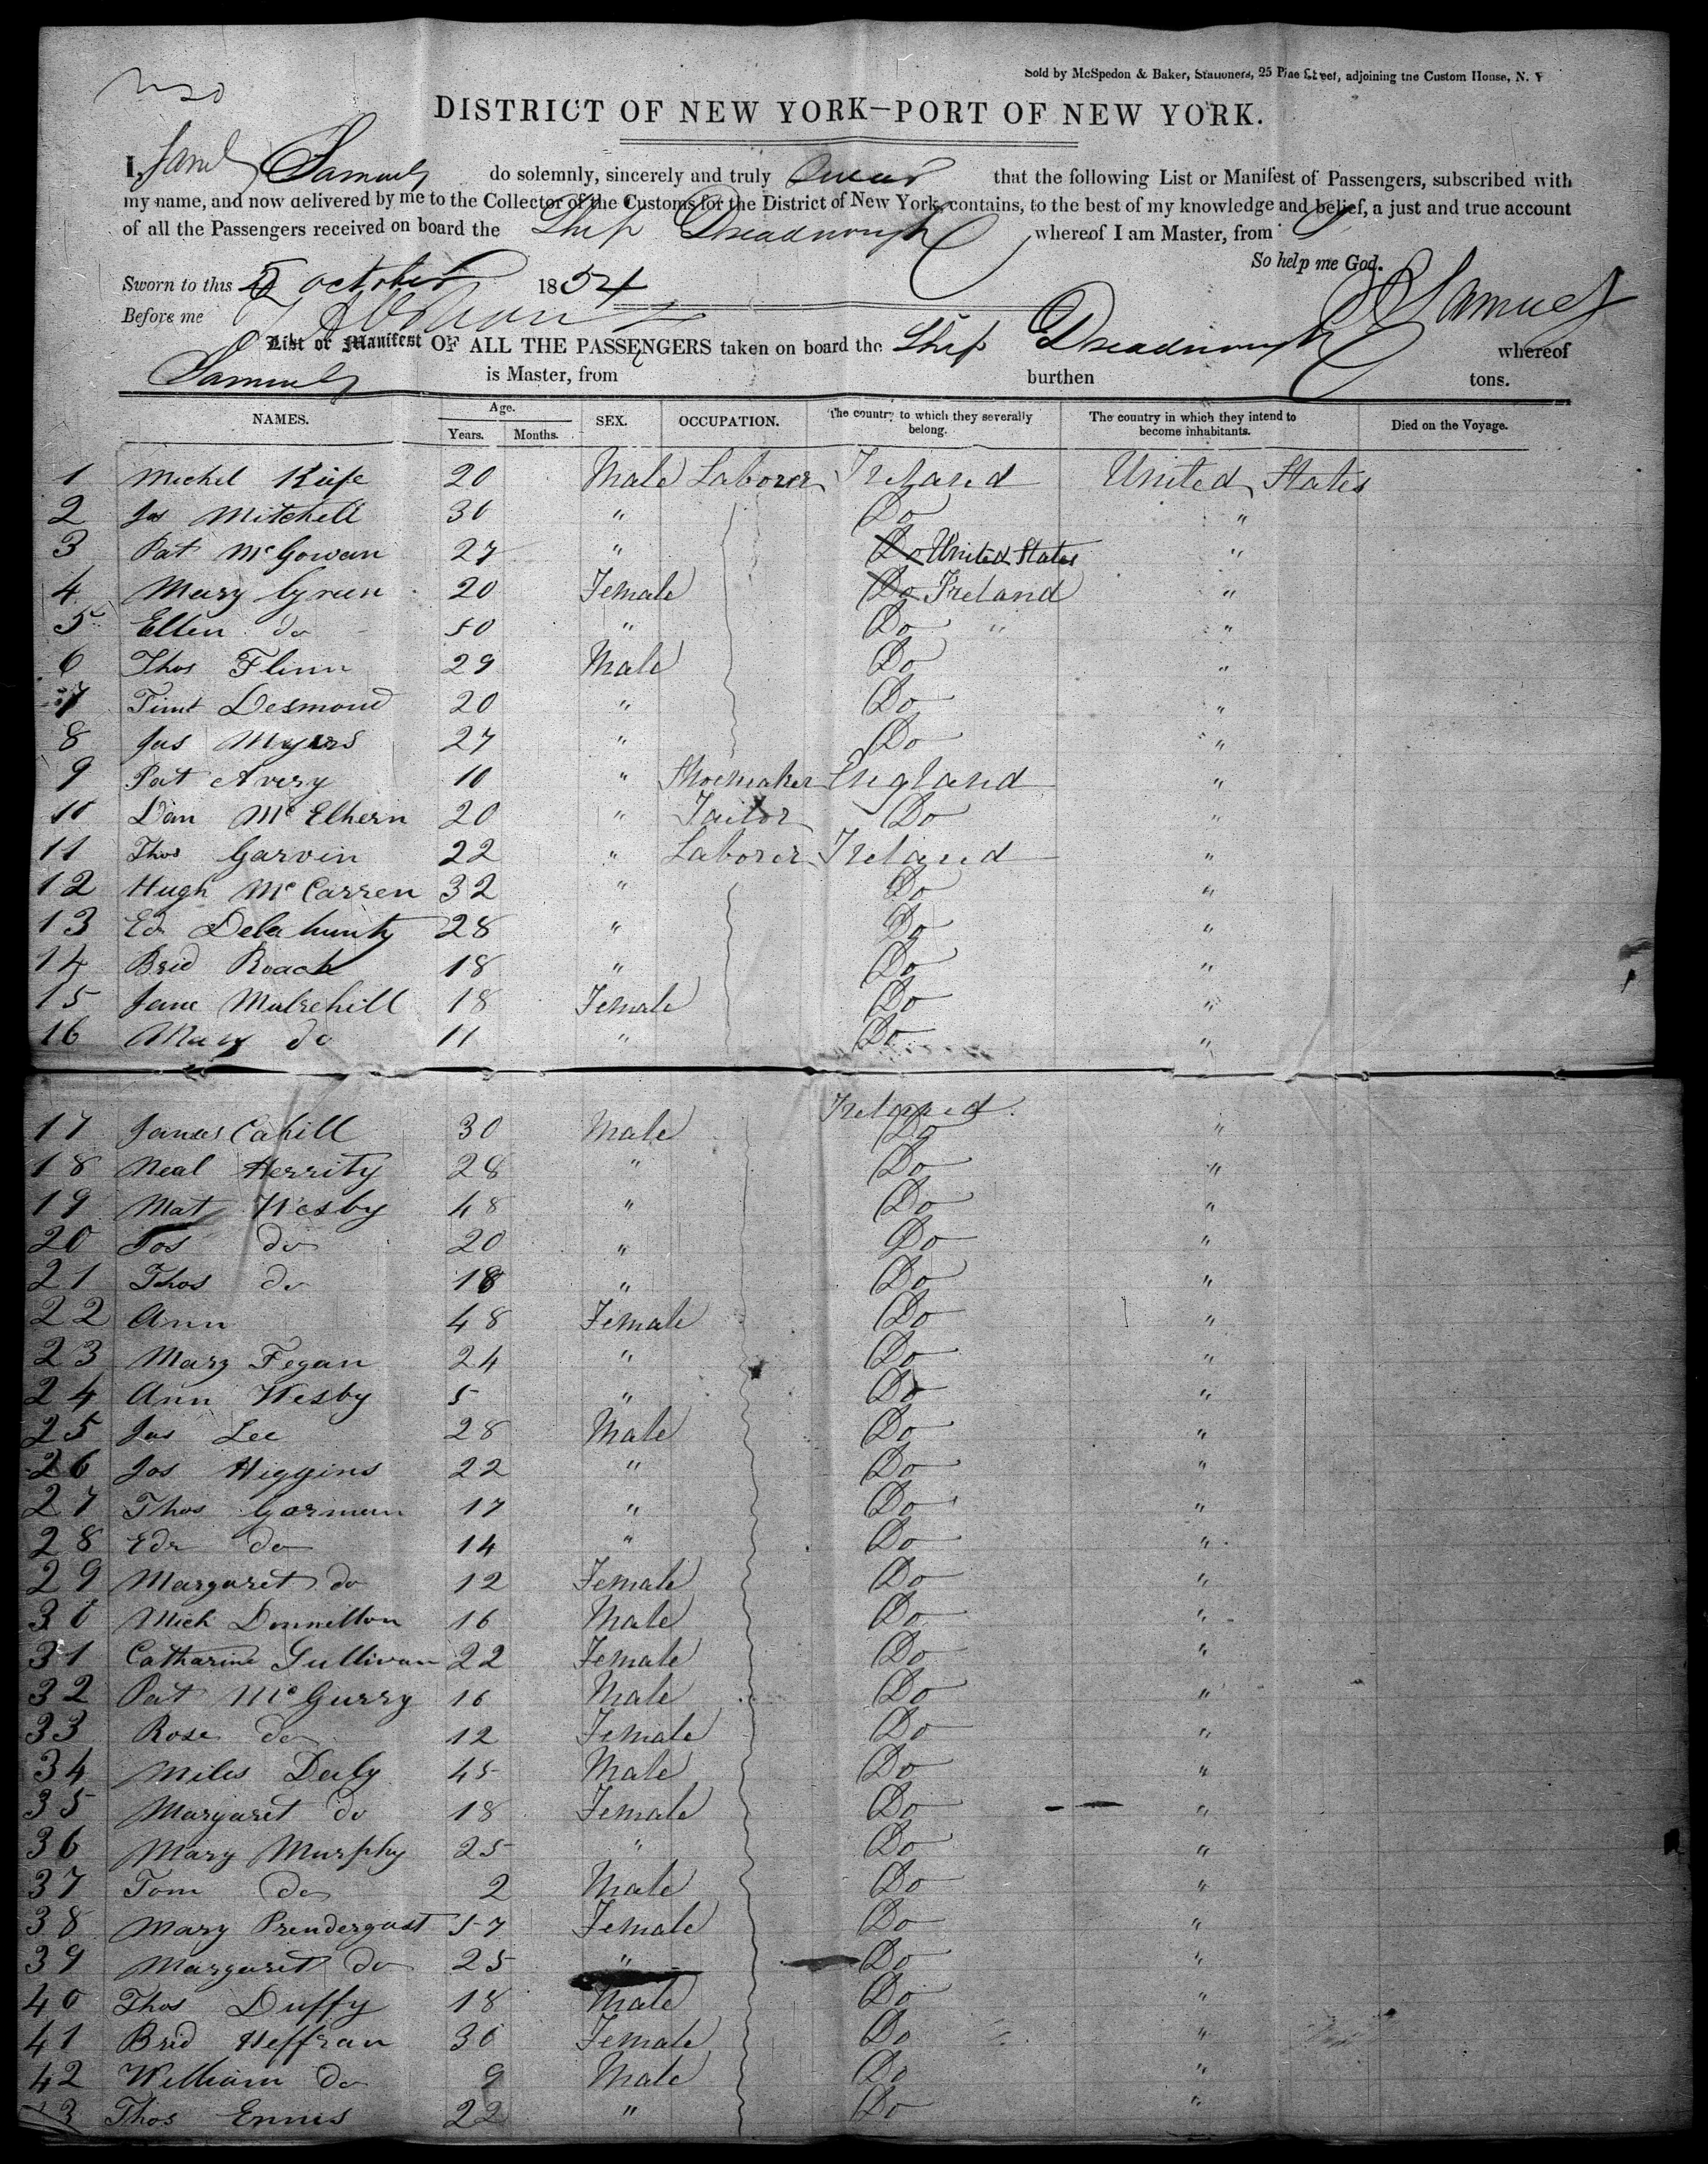 Sold by McSpedon & Baker, Stationers, 25 Pine Street, adjoining the Custom House, N. Y
DISTRICT OF NEW YORK—PORT OF NEW YORK.
I, Saml Samuels do solemnly, sincerely and truly swear that the following List or Manifest of Passengers, subscribed with
my name, and now delivered by me to the Collector of the Customs for the District of New York, contains, to the best of my knowledge and belief, a just and true account
of all the Passengers received on board the Ship Dreadnought whereof I am Master, from
So help me God.
Sworn to this 5 october 1854
Samuels
Before me
List or Manifest OF ALL THE PASSENGERS taken on board the Ship Dreadnought whereof
Samuels is Master, from burthen tons.
NAMES. Age. Years. Months. SEX. OCCUPATION. The country to which they severally belong. The country in which they intend to become inhabitants. Died on the Voyage.
1 Michel Kiife 20 Male Laborer Ireland United States
2 Jas Mitchell 30 " Do "
3 Pat McGowan 27 " Do United States "
4 Mary Gyrun 20 Female Do Ireland "
5 Ellen do 50 " Do " "
6 Thos Flinn 29 Male Do "
7 Timt Desmond 20 " Do "
8 Jas Myers 27 " Do "
9 Pat Avery 10 " Shoemaker England "
10 Dan McElhern 20 " Tailor Do "
11 Thos Garvin 22 " Laborer Ireland "
12 Hugh McCarren 32 " Do "
13 Ed Delahunty 28 " Do "
14 Brid Roach 18 " Do "
15 Jane Mulrehill 18 Female Do "
16 Mary do 11 " Do "
Ireland
17 James Cahill 30 Male Do "
18 Neal Herrity 28 " Do "
19 Mat Wesby 48 " Do "
20 Jos do 20 " Do "
21 Thos do 18 " Do "
22 Ann 48 Female Do "
23 Mary Fegan 24 " Do "
24 Ann Wesby 5 " Do "
25 Jas Lee 28 Male Do "
26 Jos Higgins 22 " Do "
27 Thos Gorman 17 " Do "
28 Edr do 14 " Do "
29 Margaret do 12 Female Do "
30 Mich Donnillon 16 Male Do "
31 Catharine Sullivan 22 Female Do "
32 Pat McGurry 16 Male Do "
33 Rose do 12 Female Do "
34 Miles Daly 45 Male Do "
35 Margaret do 18 Female Do "
36 Mary Murphy 25 " Do "
37 Tom do 2 Male Do "
38 Mary Prendergast 57 Female Do "
39 Margaret do 25 " Do "
40 Thos Duffy 18 Male Do "
41 Brid Heffran 30 Female Do "
42 William do 9 Male Do "
43 Thos Ennis 22 " Do "